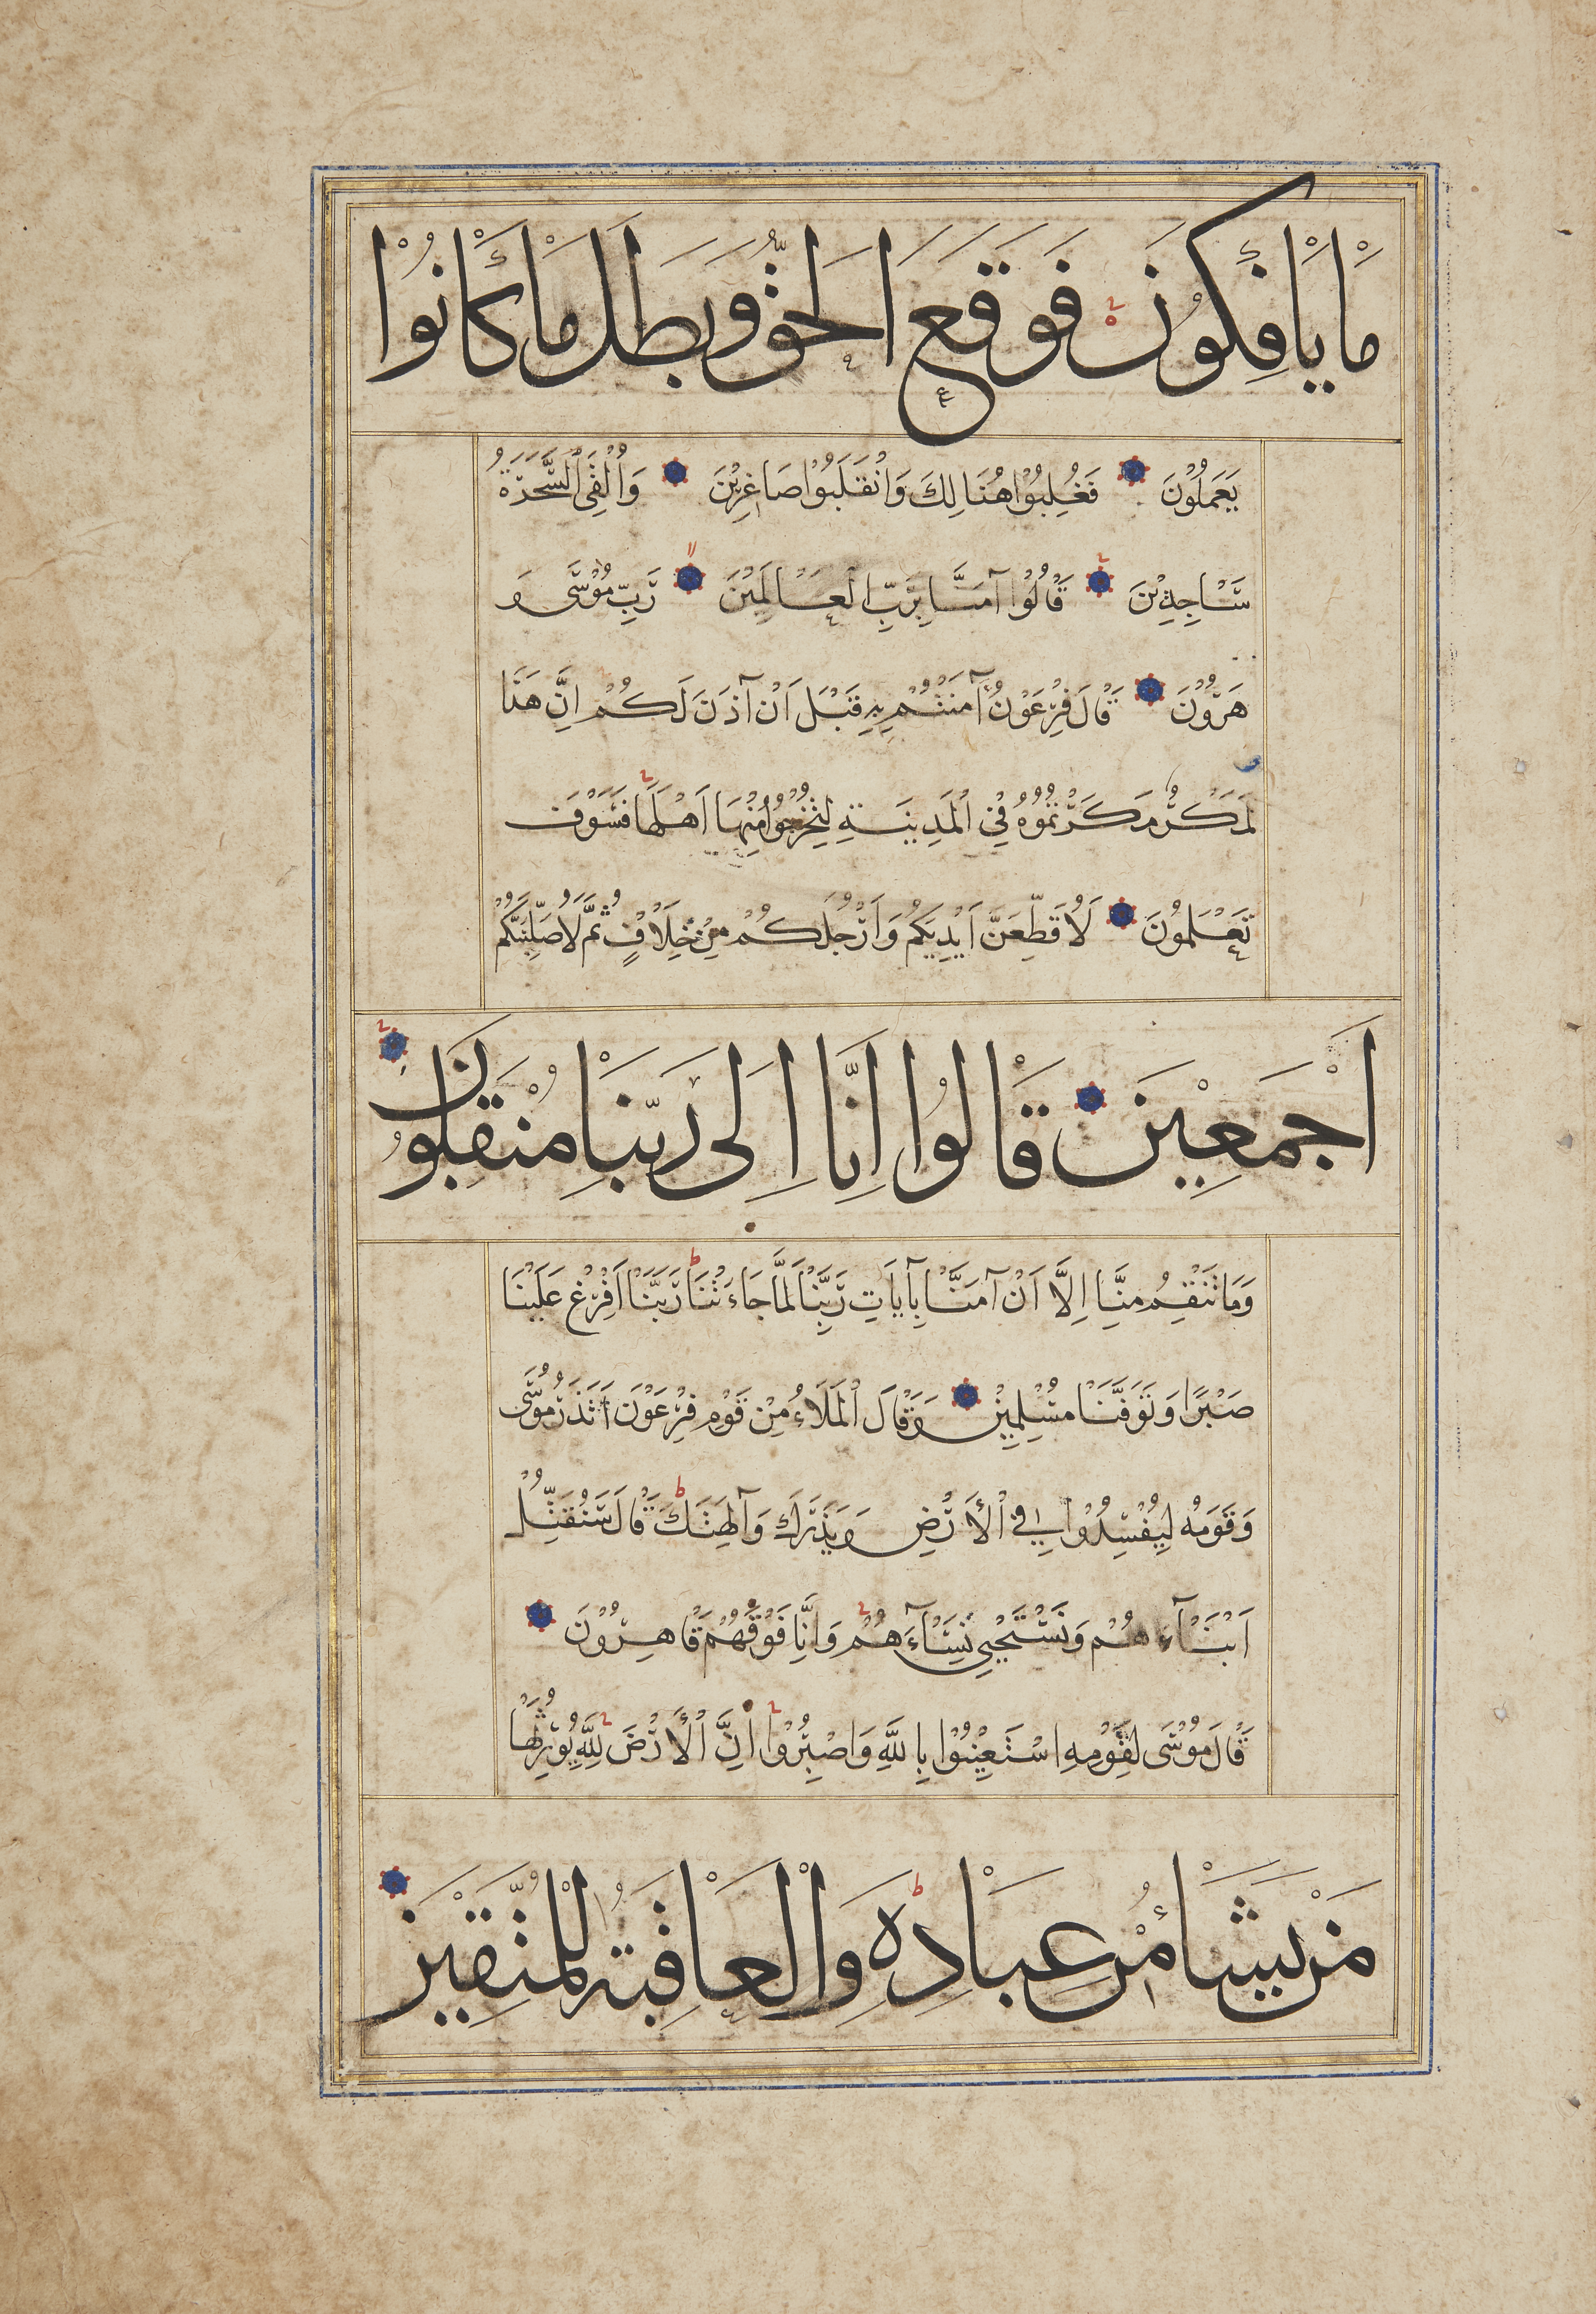 مَا يَأْفِكُونَ فَوَقَعَ الْحَقُّ وَبَطَلَ مَا كَانُوا
يَعْمَلُونَ فَغُلِبُوا هُنَالِكَ وَانْقَلَبُوا صَاغِرِينَ وَأُلْقِيَ السَّحَرَةُ
سَاجِدِينَ قَالُوا آمَنَّا بِرَبِّ الْعَالَمِينَ رَبِّ مُوسَى وَ
هَرُونَ قَالَ فِرْعَوْنُ آمَنْتُمْ بِهِ قَبْلَ أَنْ آذَنَ لَكُمْ إِنَّ هَذَا
لَمَكْرٌ مَكَرْتُمُوهُ فِي الْمَدِينَةِ لِتُخْرِجُوا مِنْهَا أَهْلَهَا فَسَوْفَ
تَعْلَمُونَ لَأُقَطِّعَنَّ أَيْدِيَكُمْ وَأَرْجُلَكُمْ مِنْ خِلَافٍ ثُمَّ لَأُصَلِّبَنَّكُمْ
أَجْمَعِينَ قَالُوا إِنَّا إِلَى رَبِّنَا مُنْقَلِبُونَ
وَمَا تَنْقِمُ مِنَّا إِلَّا أَنْ آمَنَّا بِآيَاتِ رَبِّنَا لَمَّا جَاءَتْنَا رَبَّنَا أَفْرِغْ عَلَيْنَا
صَبْرًا وَتَوَفَّنَا مُسْلِمِينَ وَقَالَ الْمَلَاءُ مِنْ قَوْمِ فِرْعَوْنَ أَتَذَرُ مُوسَى
وَقَوْمَهُ لِيُفْسِدُوا فِي الْأَرْضِ وَيَذَرَكَ وَآلِهَتَكَ قَالَ سَنُقَتِّلُ
أَبْنَآءَهُمْ وَنَسْتَحْيِي نِسَآءَهُمْ وَإِنَّا فَوْقَهُمْ قَاهِرُونَ
قَالَ مُوسَى لِقَوْمِهِ اسْتَعِينُوا بِاللَّهِ وَاصْبِرُوا إِنَّ الْأَرْضَ لِلَّهِ يُورِثُهَا
مَنْ يَشَاءُ مِنْ عِبَادِهِ وَالْعَاقِبَةُ لِلْمُتَّقِينَ